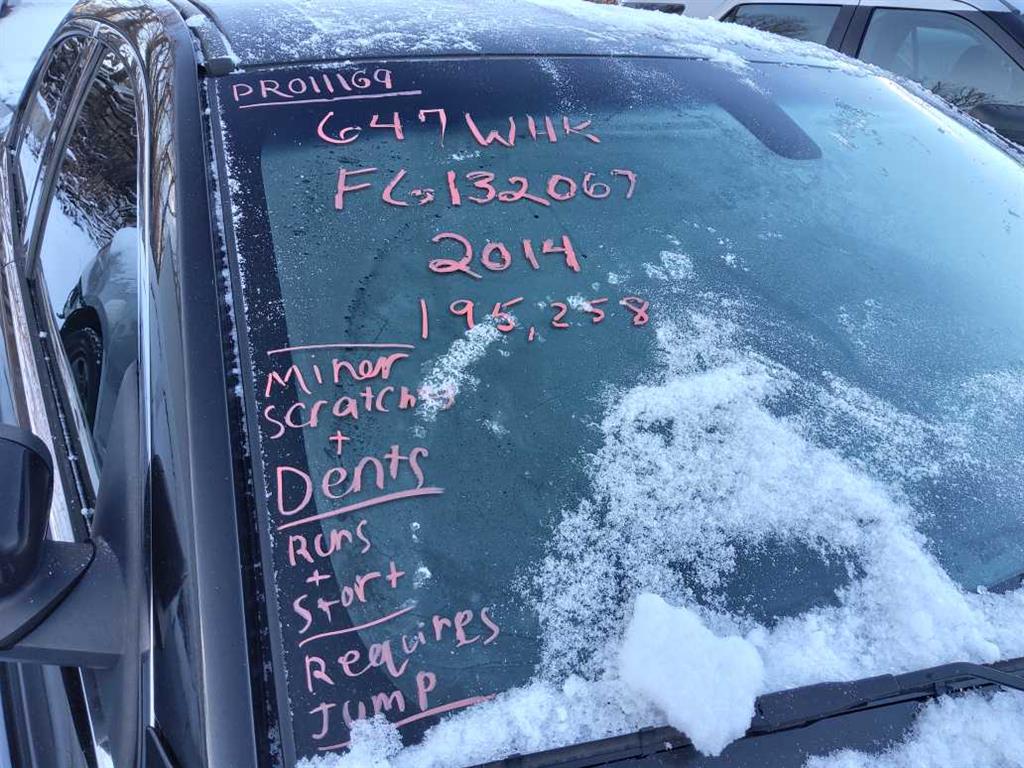 PR011169
647WHK
FG132067
2014
195,258
Miner
scratches
+
Dents
Runs
+
Stort
Requires
Jump